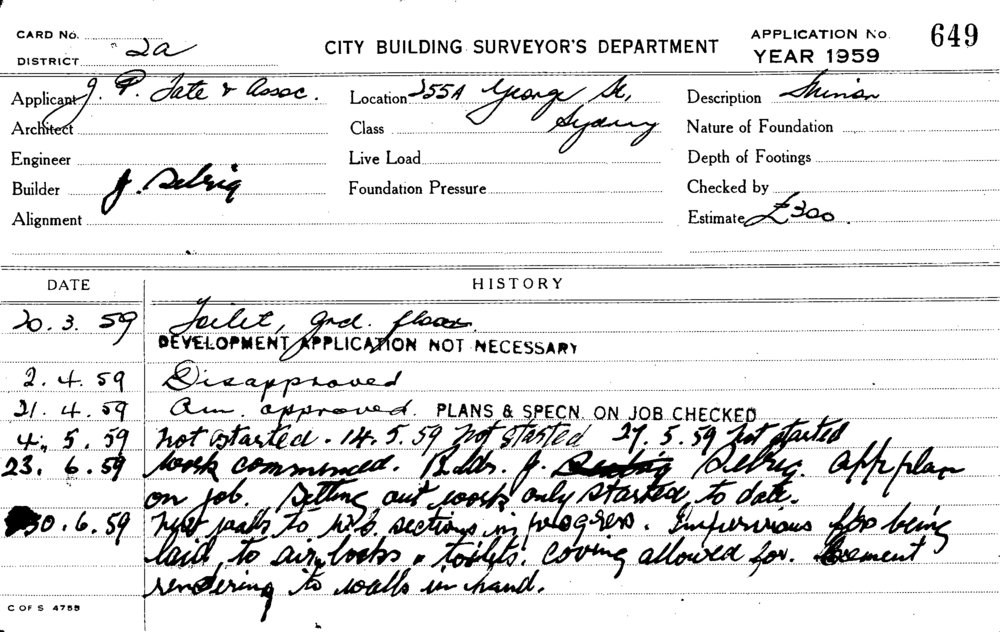 CARD No.
DISTRICT 2a
CITY BUILDING SURVEYOR'S DEPARTMENT
APPLICATION No. 649
YEAR 1959
Applicant J. P. Tate & Assoc.
Location 255A George St,
Sydney
Description Minor
Architect
Class
Nature of Foundation
Engineer
Live Load
Depth of Footings
Builder J. Selrig
Foundation Pressure
Checked by
Alignment
Estimate £300.
DATE
HISTORY
20. 3. 59 Toilet, grd. floor.
DEVELOPMENT APPLICATION NOT NECESSARY
2. 4. 59 Disapproved
21. 4. 59 Am. approved. PLANS & SPECN. ON JOB CHECKED
4. 5. 59 not started. 14. 5. 59 not started 27. 5. 59 not started
23. 6. 59 Work commenced. Bldr. J. Selrig. App plan
on job. Setting out work only started to date.
30. 6. 59 walls to sections in progress. Impervious being
laid to air locks & toilets. Coving allowed for. Cement
rendering to walls in hand.
C OF S 4755